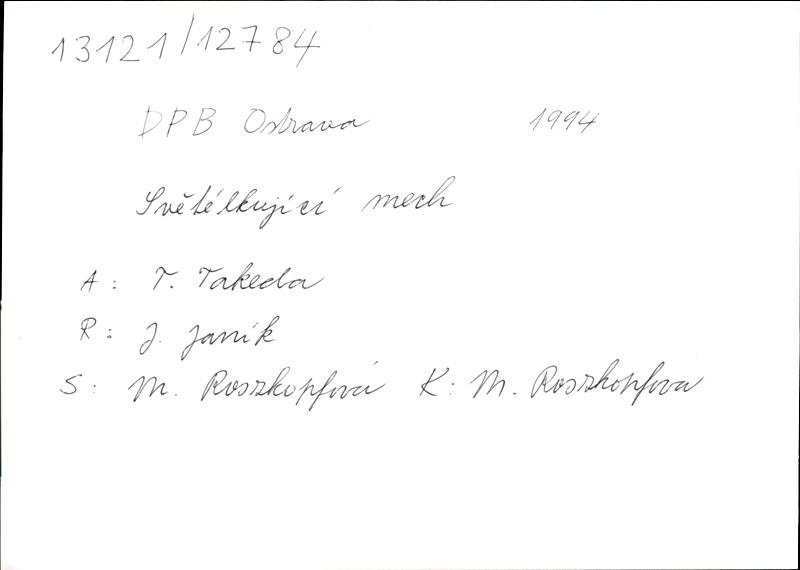 13121/12784
DPB Ostrava 1994
Světélkující mech
A: T. Takeda
R: J. Janík
S: M. Roszkopfová K: M. Roszkopfova